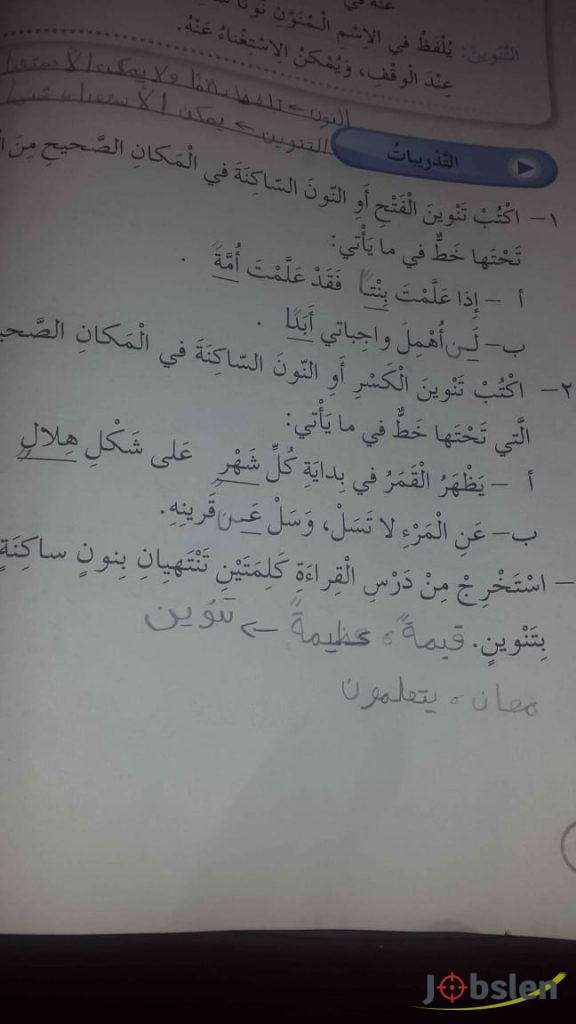 عنه في
التَّنْوينُ: يُلْفَظُ في الِاسْمِ الْمُنَوَّنِ نونًا
عِنْدَ الْوَقْفِ، وَيُمْكِنُ الِاسْتِغْناءُ عَنْهُ.
النون ← تلفظ ولا يمكن الاستغناء
التنوين ← يمكن الاستغناء عنها
التَّدْريباتُ
١- اكْتُبْ تَنْوينَ الْفَتْحِ أَوِ النّونَ السّاكِنَةَ في الْمَكانِ الصَّحيحِ مِنَ
تَحْتَها خَطٌّ في ما يَأْتي:
أ - إذا عَلَّمْتَ بِنْتاً فَقَدْ عَلَّمْتَ أُمَّةً .
ب- لَن أُهْمِلَ واجِباتي أَبَدًا .
٢- اكْتُبْ تَنْوينَ الْكَسْرِ أَوِ النّونَ السّاكِنَةَ في الْمَكانِ الصَّحيحِ
الَّتي تَحْتَها خَطٌّ في ما يَأْتي:
أ - يَظْهَرُ الْقَمَرُ في بِدايَةِ كُلِّ شَهْرٍ عَلى شَكْلِ هِلالٍ
ب- عَنِ الْمَرْءِ لا تَسَلْ، وَسَلْ عَن قَرينِهِ.
- اسْتَخْرِجْ مِنْ دَرْسِ الْقِراءَةِ كَلِمَتَيْنِ تَنْتَهِيانِ بِنونٍ ساكِنَةٍ
بِتَنْوينٍ. قيمةً، عظيمةً ← تنوين
معان، يتعلمون
Jobslen